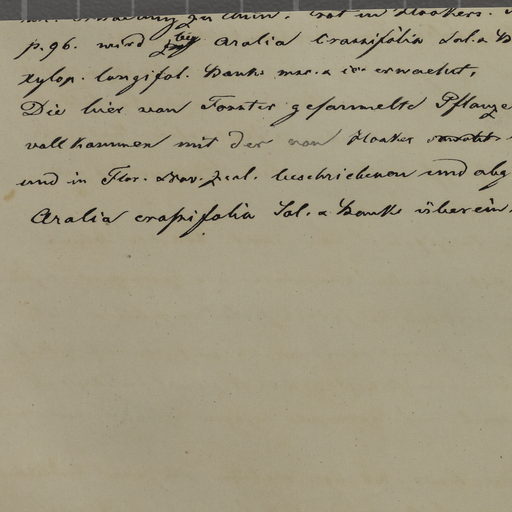 zu thun. Erst in Hookers.
p. 96. wird bei Aralia Crassifolia Sol. a B
xylop. longifol. Banks mss. a ic. erwaehnt,
Die hier von Forster gesammelte Pflanze
vollkommen mit der von Hooker
und in Flor. Nov. Zeal. beschriebenen und abg
Aralia crassifolia Sol. a Banks überein.